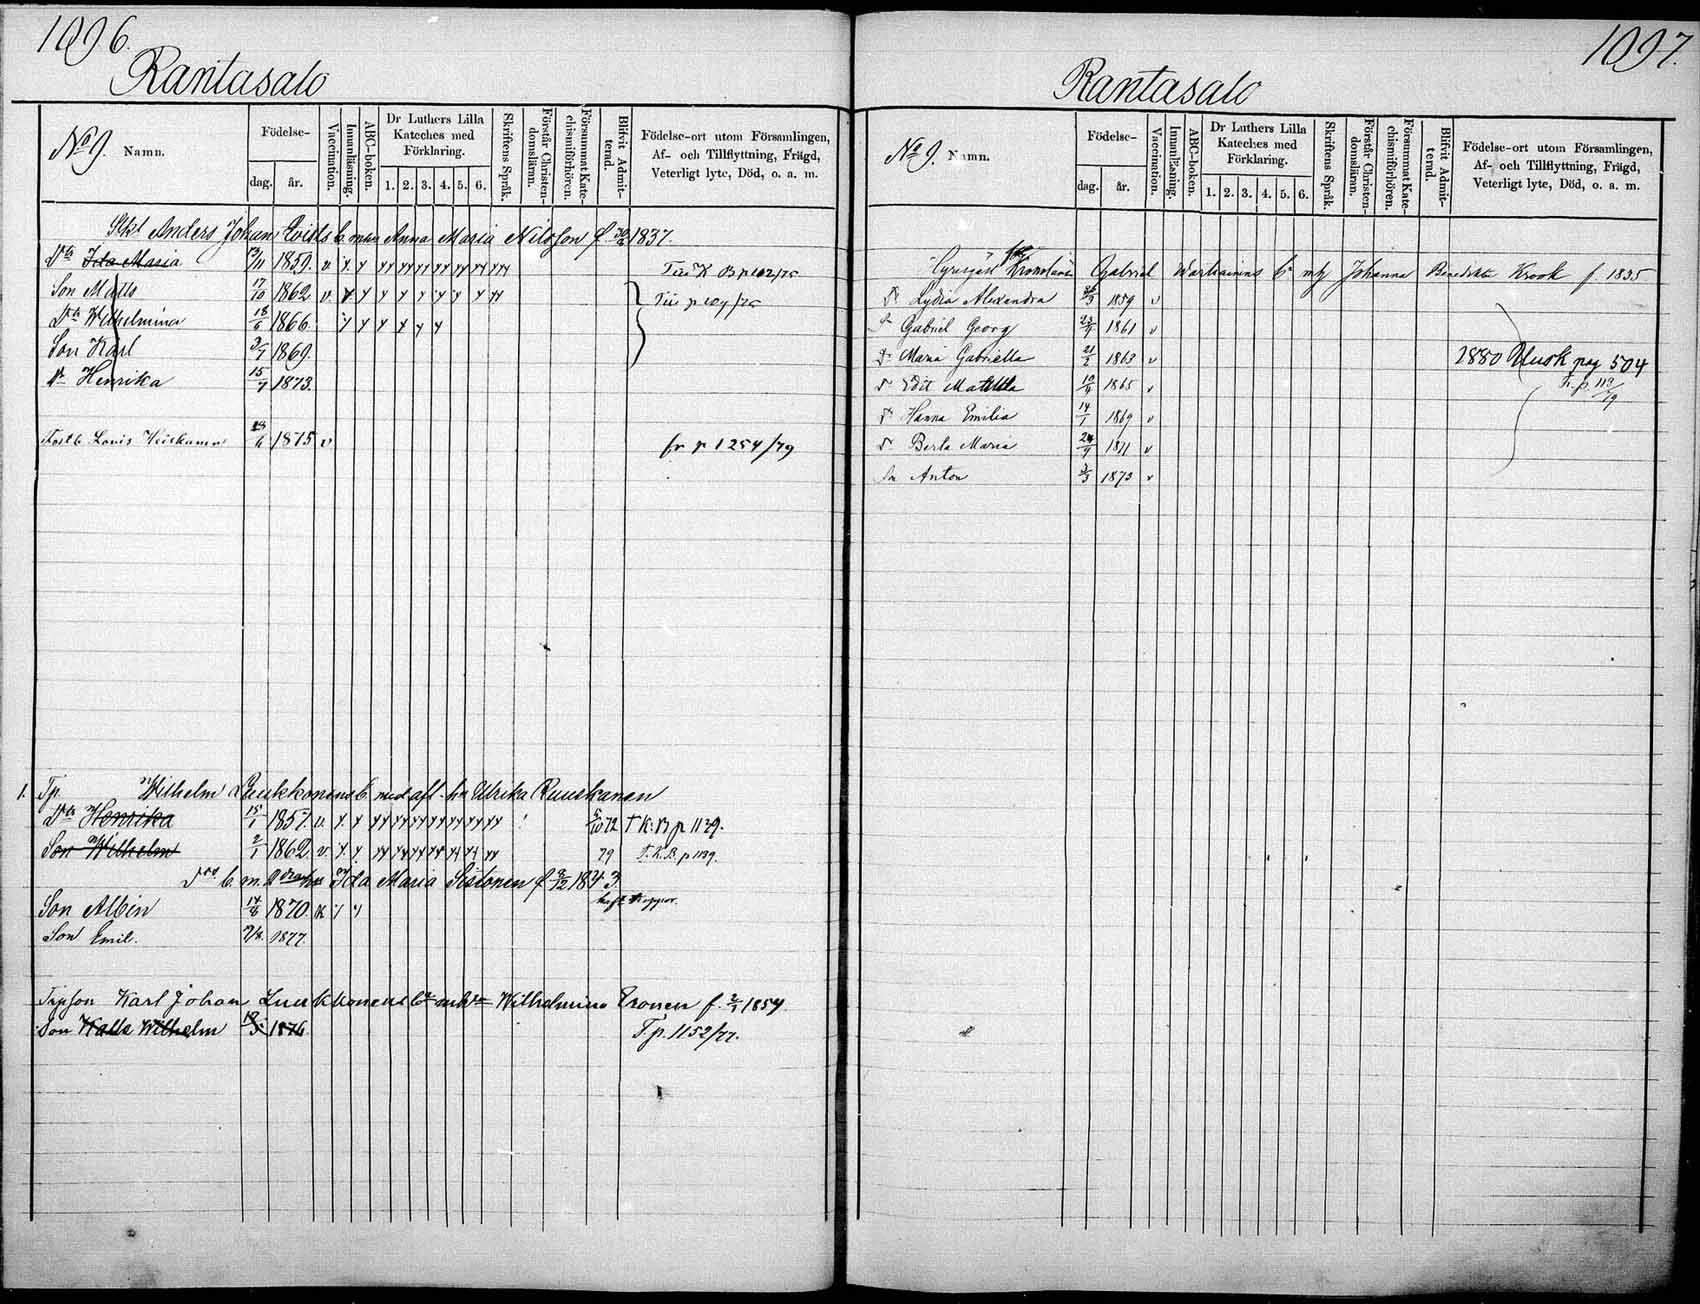 1096.
Rantasalo
No 9. Namn.
Födelse-
dag. år.
Vaccination.
Innanläsning.
ABC-boken.
Dr Luthers Lilla Kateches med Förklaring.
1. 2. 3. 4. 5. 6.
Skriftens Språk.
Förstår Christendomsläran.
Försummat Katechismiförhören.
Blifvit Admitterad.
Födelse-ort utom Församlingen,
Af- och Tillflyttning, Frägd,
Veterligt lyte, Död, o. a. m.
Anders Johan b. m. Anna Maria Nilsson f. 1837.
Dtr Ida Maria 13/11 1859. v.
Son Matts 17/10 1862. v.
Dtr Wilhelmina 18/6 1866.
Son Karl 3/7 1869.
Dr Henrika 15/7 1873.
Lovis Heiskanen 1875 v fr p 1254/79
1. Tp. Wilhelm Luukkonens b. med afl. hu Ulrika Ruuskanen
Dtr Henrika 15/1 1857. v. 72 † K. B. p 1129.
Son Wilhelm 2/1 1862. v. 79 T. K. B. p 1139.
b. m. Ida Maria Sistonen f. 1843.
Son Albin 14/6 1870. haft koppor.
Son Emil. 1877.
Tpson Karl Johan Luukkonens Wilhelmina Eronen f. 1854.
Son Kalle Wilhelm 1876. T. p. 1152/77.
1097.
Rantasalo
No 9. Namn.
Födelse-
dag. år.
Vaccination.
Innanläsning.
ABC-boken.
Dr Luthers Lilla Kateches med Förklaring.
1. 2. 3. 4. 5. 6.
Skriftens Språk.
Förstår Christendomsläran.
Försummat Katechismiförhören.
Blifvit Admitterad.
Födelse-ort utom Församlingen,
Af- och Tillflyttning, Frägd,
Veterligt lyte, Död, o. a. m.
Gabriel Wartiainens b. Johanna Benedikta Krook f. 1835
Dr Lydia Alexandra 1859 v
Gabriel Georg 1861 v
Dr Maria Gabriella 21/2 1863 v 2880 Uusk pag 504
Dr Edit Matilda 1865 v
Dr Hanna Emilia 14/1 1869 v
Dr Berta Maria 1871 v
Anton 1873 v